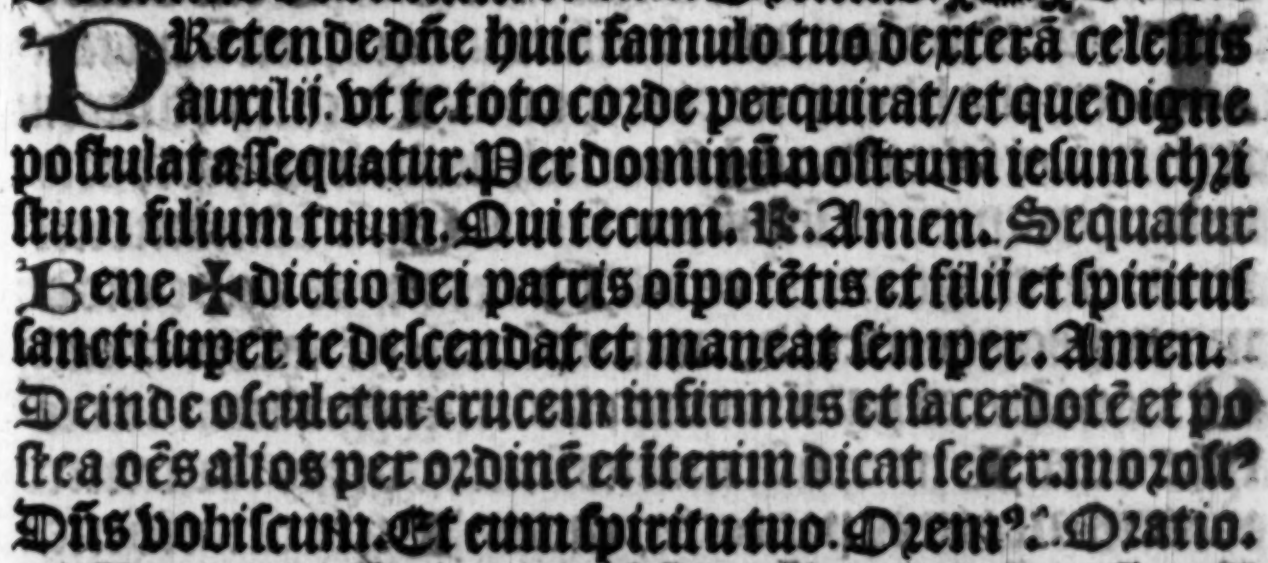 PRetende dn̄e huic famulo tuo dexterā celestis
auxilij. vt te toto corde perquirat/et que digne
postulat assequatur. Per dominū nostrum iesum chri
stum filium tuum. Qui tecum. R. Amen. Sequatur
Bene ✠ dictio dei patris oīpotētis et filij et spiritus
sancti super te descendat et maneat semper. Amen.
Deinde osculetur crucem infirmus et sacerdotē et po
stea oēs alios per ordinē et īterim dicat
Dn̄s vobiscum. Et cum spiritu tuo. Oremꝰ. Oratio.